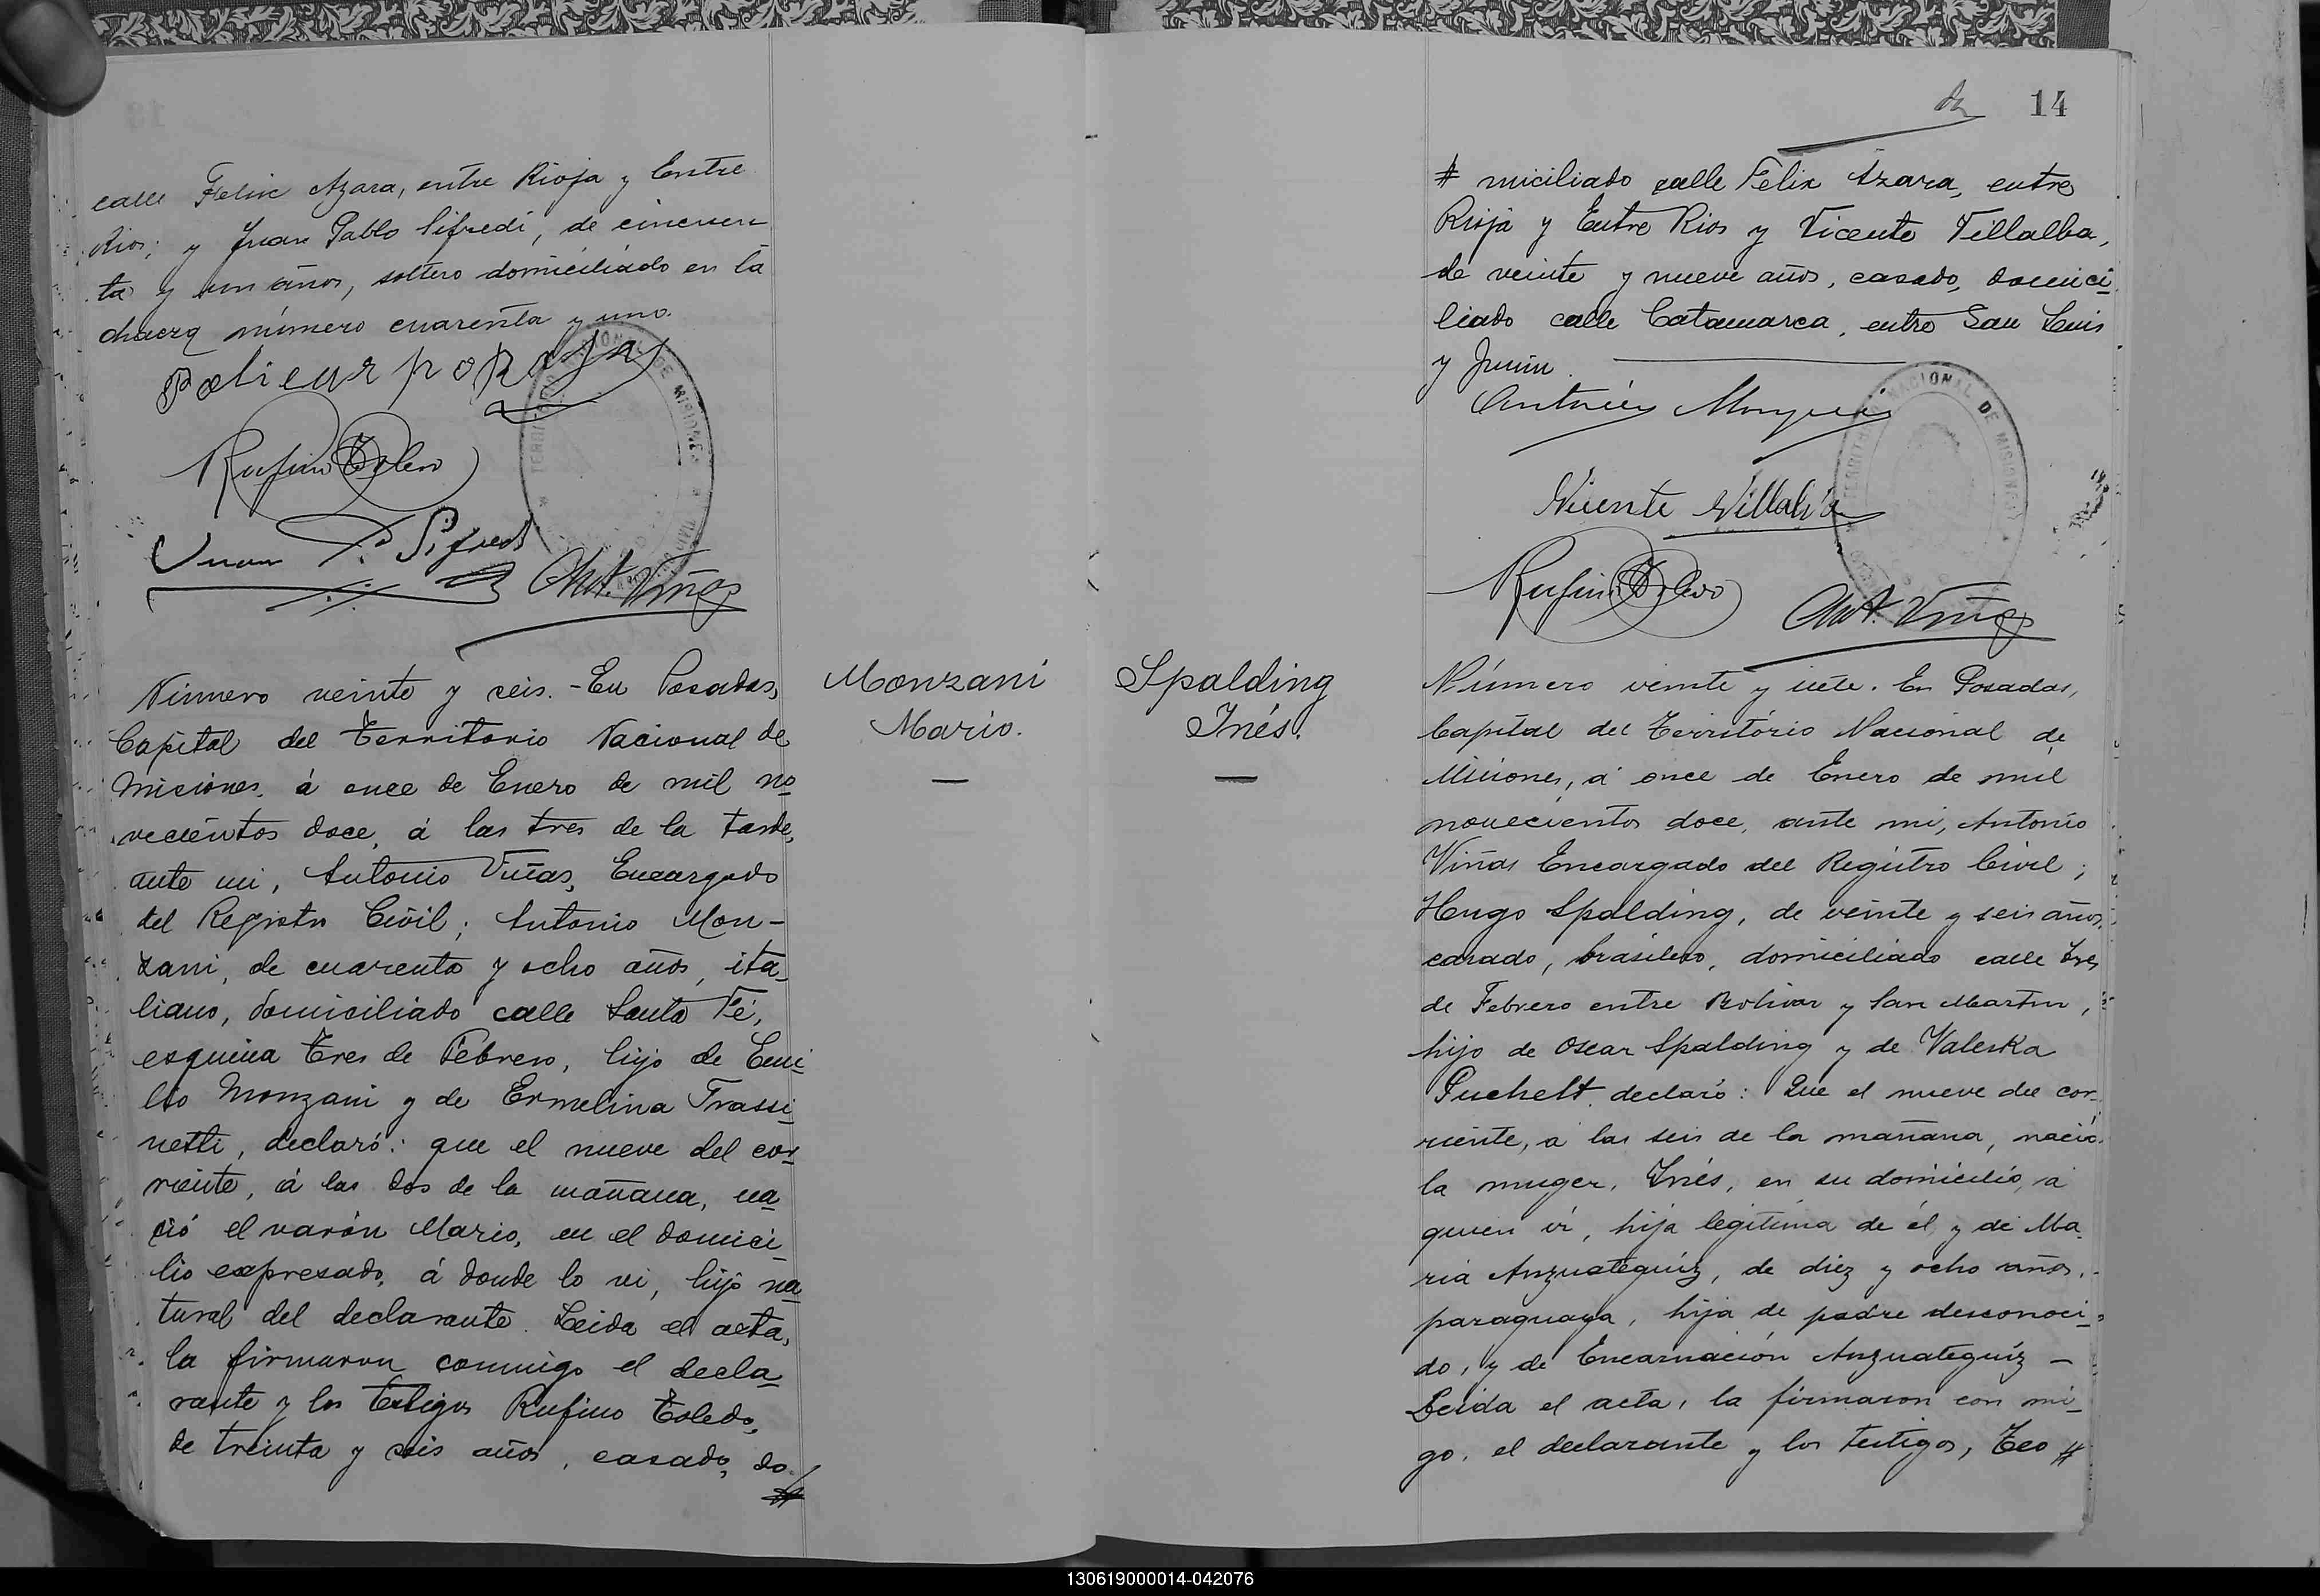 calle Felix Azara, entre Rioja y Entre
Rios; y Juan Pablo Sifredi, de cincuen
ta y un años, soltero domiciliado en la
chacra número cuarenta y uno.
Rufino Toledo
Juan P. Sifredi
Ant. Viñas
Número veinte y seis. - En Posadas,
Capital del Territorio Nacional de
Misiones, á once de Enero de mil no
vecientos doce, á las tres de la tarde,
ante mi, Antonio Viñas, Encargado
del Registro Civil; Antonio Mon-
zani, de cuarenta y ocho años, ita
liano, domiciliado calle Santa Fé,
esquina Tres de Febrero, hijo de Emi
lio Monzani y de Ermelina Frassi
netti, declaró: que el nueve del cor
riente, á las dos de la mañana, na
ció el varón Mario, en el domici
lio expresado, á donde lo vi, hijo na
tural del declarante. Leida el acta,
la firmaron conmigo el decla
rante y los testigos Rufino Toledo,
de treinta y seis años, casado, do
#
Monzani
Mario.
Spalding
Inés.
14
# miciliado calle Felix Azara, entre
Rioja y Entre Rios y Vicente Villalba,
de veinte y nueve años, casado, domici
liado calle Catamarca, entre San Luis
y Junin.
TERRITORIO NACIONAL DE MISIONES
Vicente Villalba
Rufino Toledo
Ant. Viñas
Número veinte y siete. En Posadas,
Capital del Territorio Nacional de
Misiones, á once de Enero de mil
novecientos doce, ante mi, Antonio
Viñas Encargado del Registro Civil;
Hugo Spalding, de veinte y seis años,
casado, brasilero, domiciliado calle Tres
de Febrero entre Bolivar y San Martin,
hijo de Oscar Spalding y de Valeska
Puchelt, declaró: Que el nueve del cor
riente, a las seis de la mañana, nació
la muger, Inés, en su domicilio, a
quien vi, hija legitima de él y de Ma
ria Anzuateguiz, de diez y ocho años,
paraguaya, hija de padre desconoci
do, y de Encarnación Anzuateguiz -
Leida el acta, la firmaron con mi-
go, el declarante y los testigos, Teo #
130619000014-042076